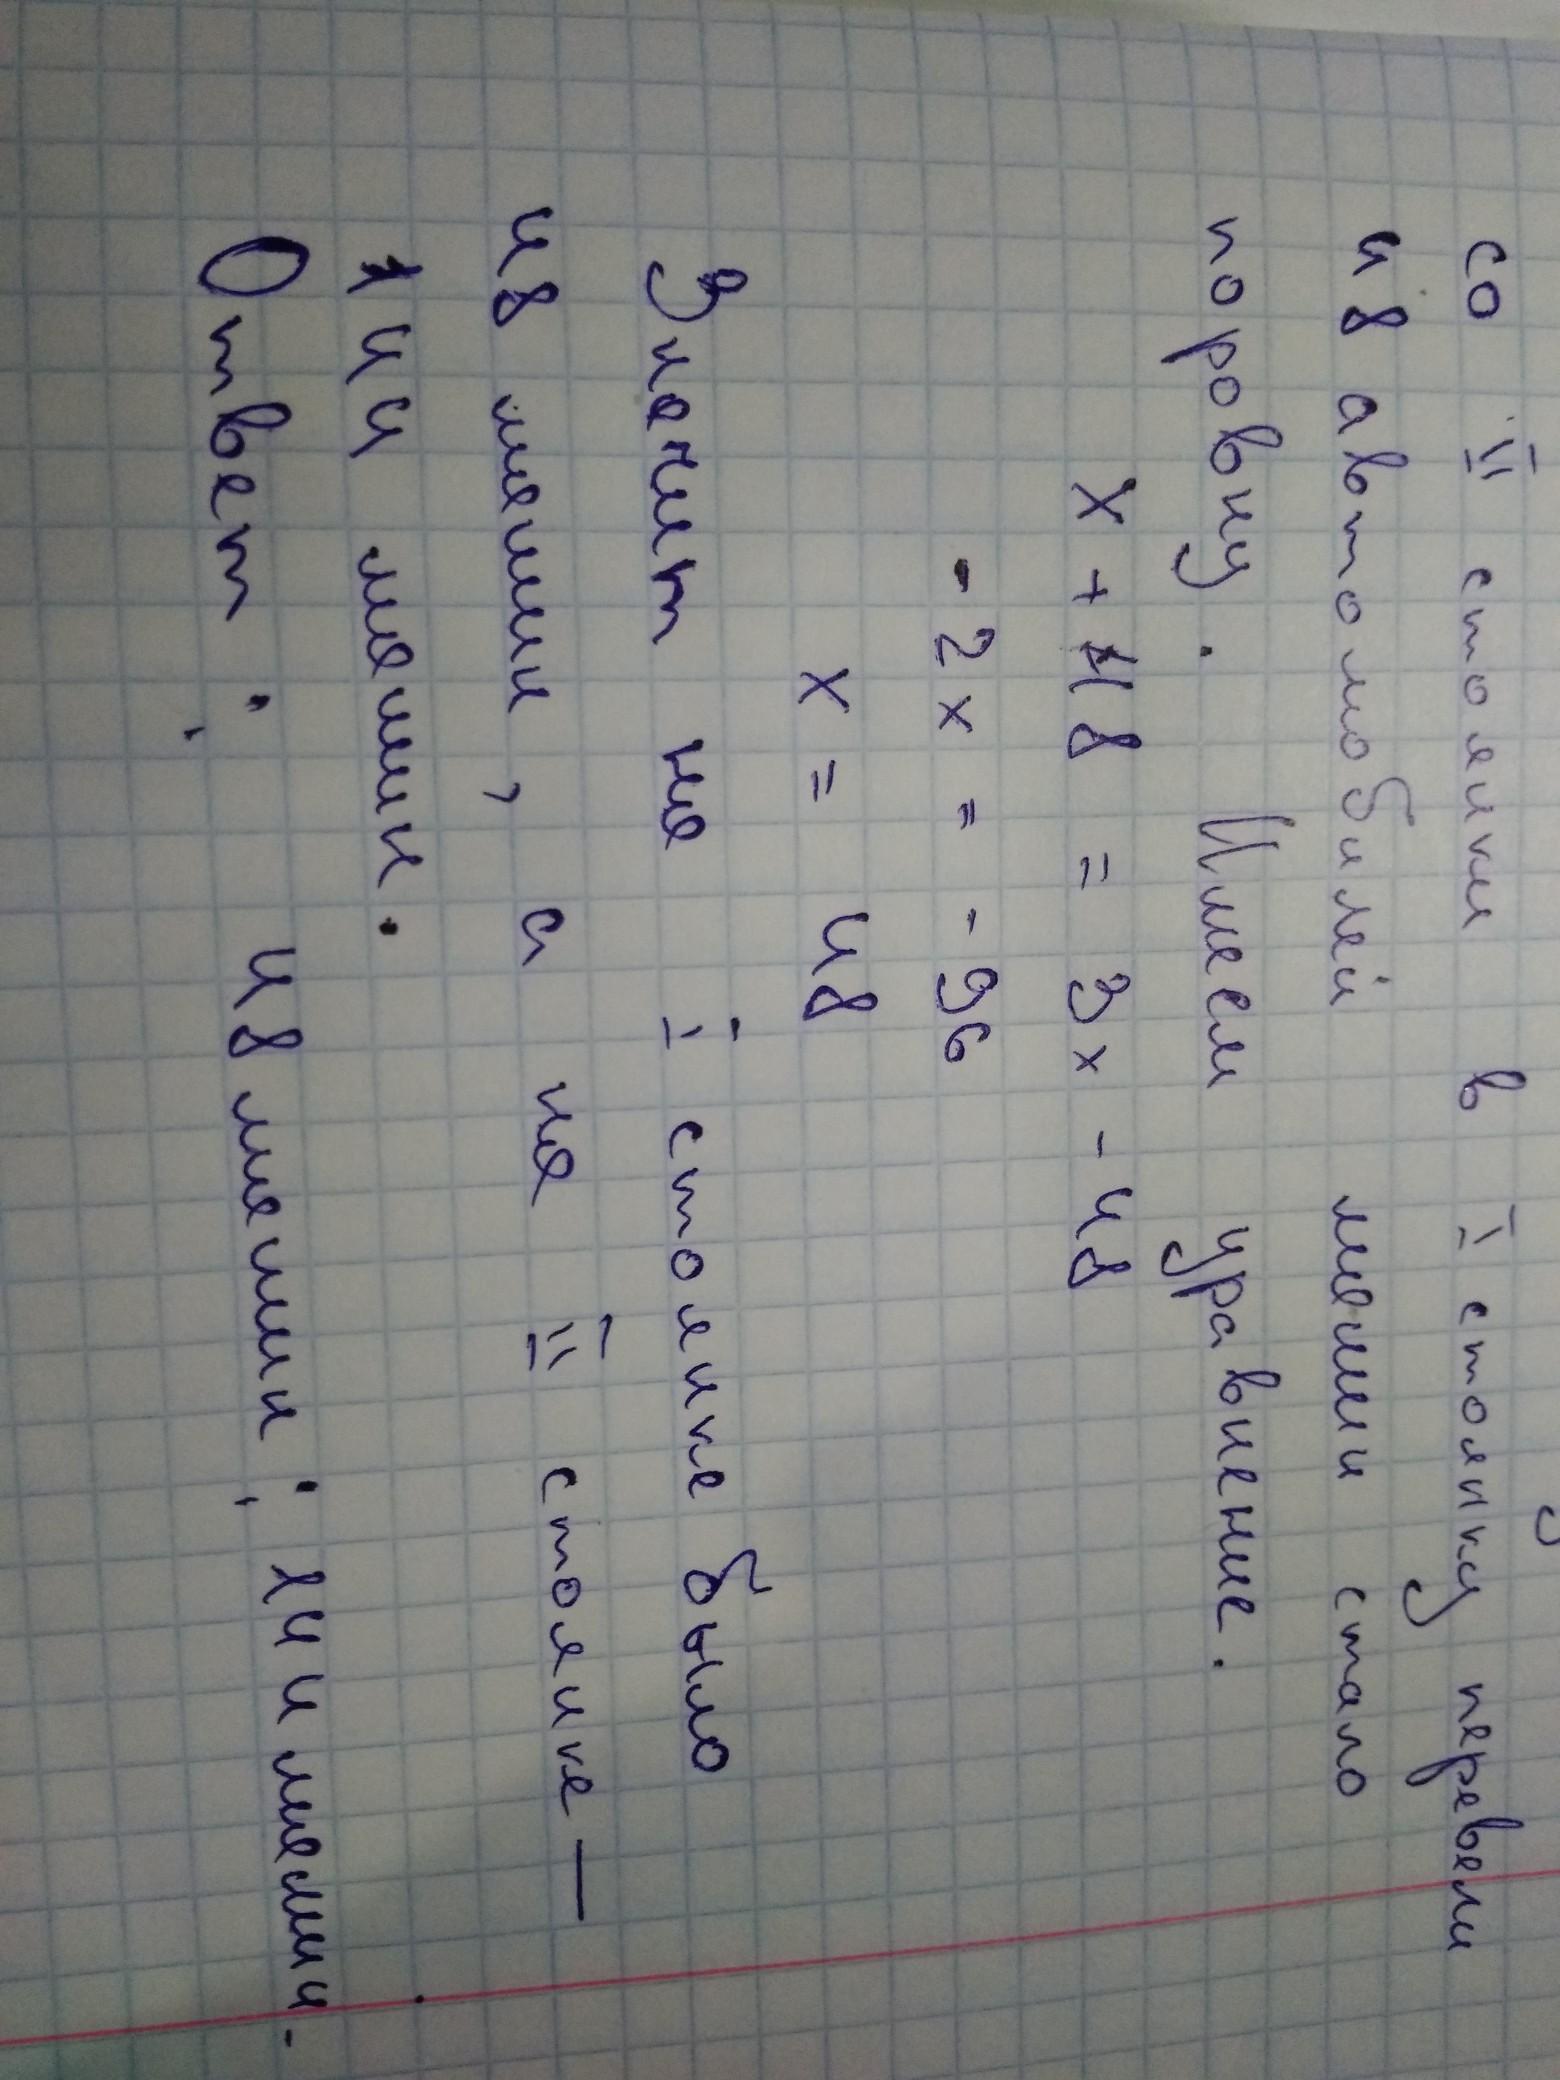 со II стоянки в I стоянку перевели
48 автомобилей машин стало
поровну. Имеем уравнение.
x + 48 = 3x - 48
-2x = -96
x = 48
Значит на I стоянке было
48 машин, а на II стоянке —
144 машин.
Ответ: 48 машин; 144 машин.